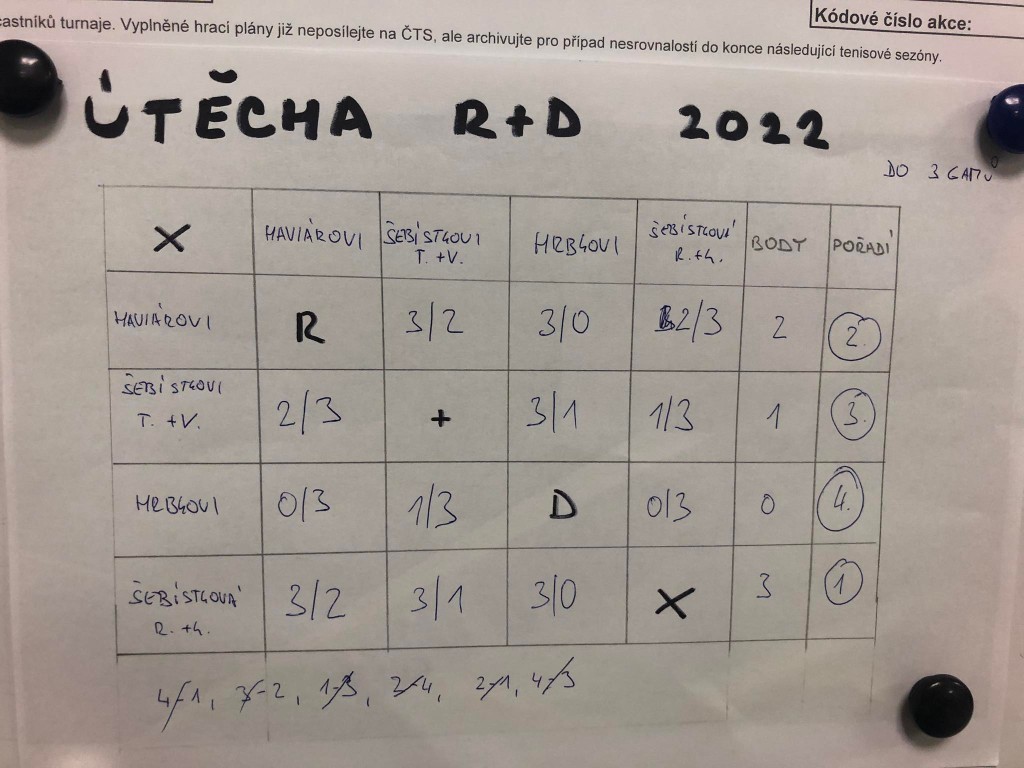 Kódové číslo akce:
častníků turnaje. Vyplněné hrací plány již neposílejte na ČTS, ale archivujte pro případ nesrovnalostí do konce následující tenisové sezóny.
ÚTĚCHA R+D 2022
DO 3 GAMŮ
X HAVIÁROVI ŠEBÍSTKOVI T. +V. HRBKOVI ŠEBÍSTKOVÁ R.+K. BODY POŘADÍ
HAVIÁROVI R 3/2 3/0 2/3 2 2.
ŠEBÍSTKOVI T. +V. 2/3 + 3/1 1/3 1 3.
HRBKOVI 0/3 1/3 D 0/3 0 4.
ŠEBÍSTKOVÁ R. +K. 3/2 3/1 3/0 X 3 1
4-1, 3-2, 1-3, 2-4, 2-1, 4-3